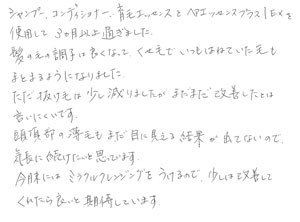 シャンプー、コンディショナー、育毛エッセンスとヘアエッセンスプラス1EXを
使用して3ヵ月以上過ぎました。
髪の毛の調子は良くなって、くせ毛でいつもはねていた毛も
まとまるようになりました。
ただ抜け毛は少し減りましたがまだまだ改善したとは
言いにくいです。
頭頂部の薄毛もまだ目に見える結果が出てないので、
気長に続けたいと思っています。
今月末にはミラクルクレンジングをうけるので、少しは改善して
くれたら良いと期待しています